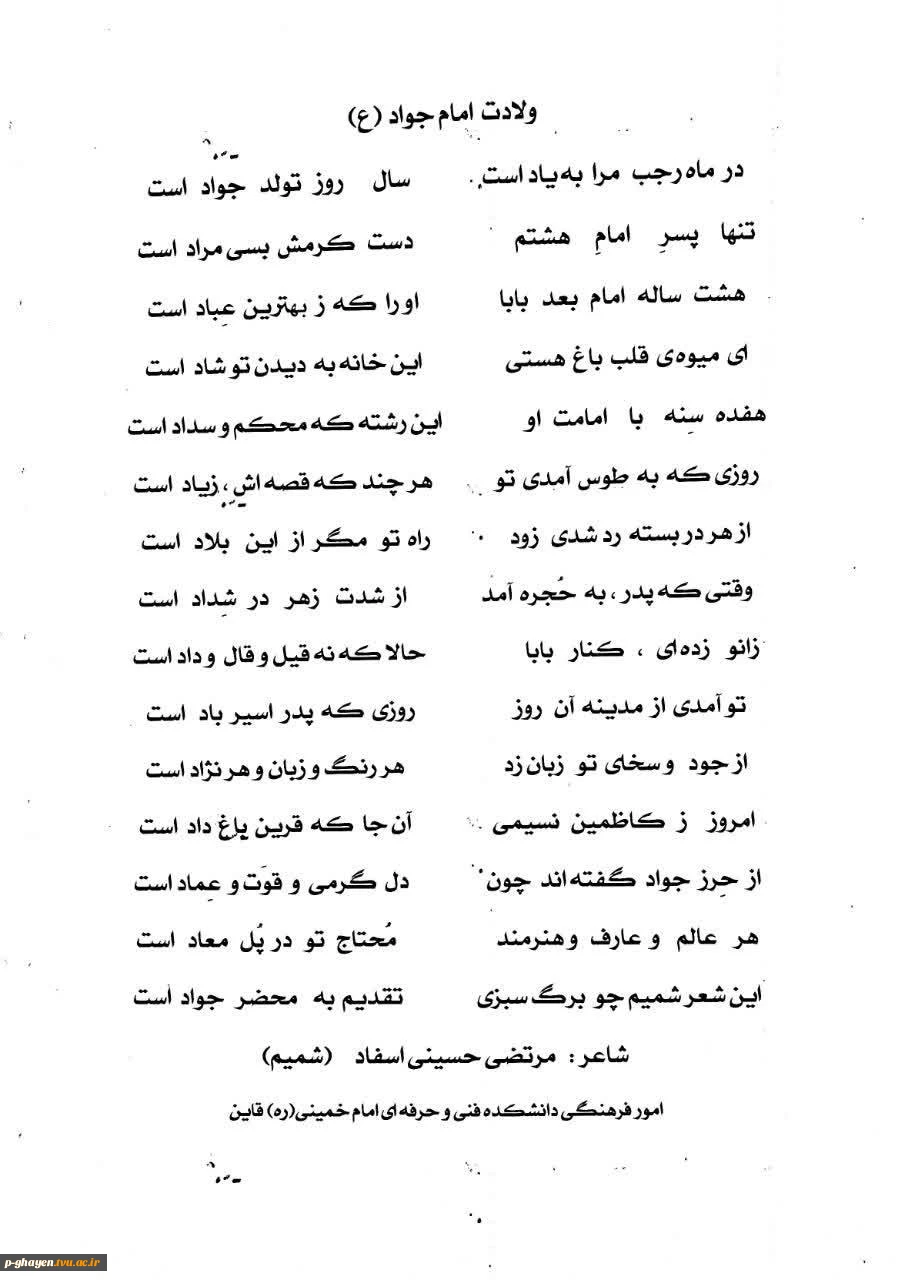 ولادت امام جواد (ع)
در ماه رجب مرا به یاد است سال روز تولد جواد است
تنها پسرِ امامِ هشتم دست کرمش بسی مراد است
هشت ساله امام بعد بابا او را که ز بهترین عِباد است
ای میوه‌ی قلب باغ هستی این خانه به دیدن تو شاد است
هفده سِنه با امامت او این رشته که محکم و سداد است
روزی که به طوس آمدی تو هر چند که قصه اش، زیاد است
از هر در بسته رد شدی زود راه تو مگر از این بلاد است
وقتی که پدر، به حُجره آمد از شدت زهر در شِداد است
زانو زده‌ای ، کنار بابا حالا که نه قیل و قال و داد است
تو آمدی از مدینه آن روز روزی که پدر اسیر باد است
از جود و سخای تو زبان زد هر رنگ و زبان و هر نژاد است
امروز ز کاظمین نسیمی آن جا که قرین باغ داد است
از حِرز جواد گفته اند چون دل گرمی و قوَت و عِماد است
هر عالم و عارف و هنرمند مُحتاج تو در پُل معاد است
این شعر شمیم چو برگ سبزی تقدیم به محضر جواد است
شاعر : مرتضی حسینی اسفاد (شمیم)
امور فرهنگی دانشکده فنی و حرفه ای امام خمینی(ره) قاین
p-ghayen.tvu.ac.ir